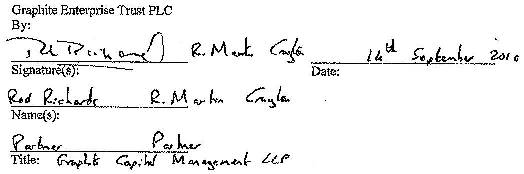 Graphite Enterprise Trust PLC
By:
R. Martin Crayton 14th September 2010
Signature(s): Date:
Rod Richards R. Martin Crayton
Name(s):
Partner Partner
Title: Graphite Capital Management LLP